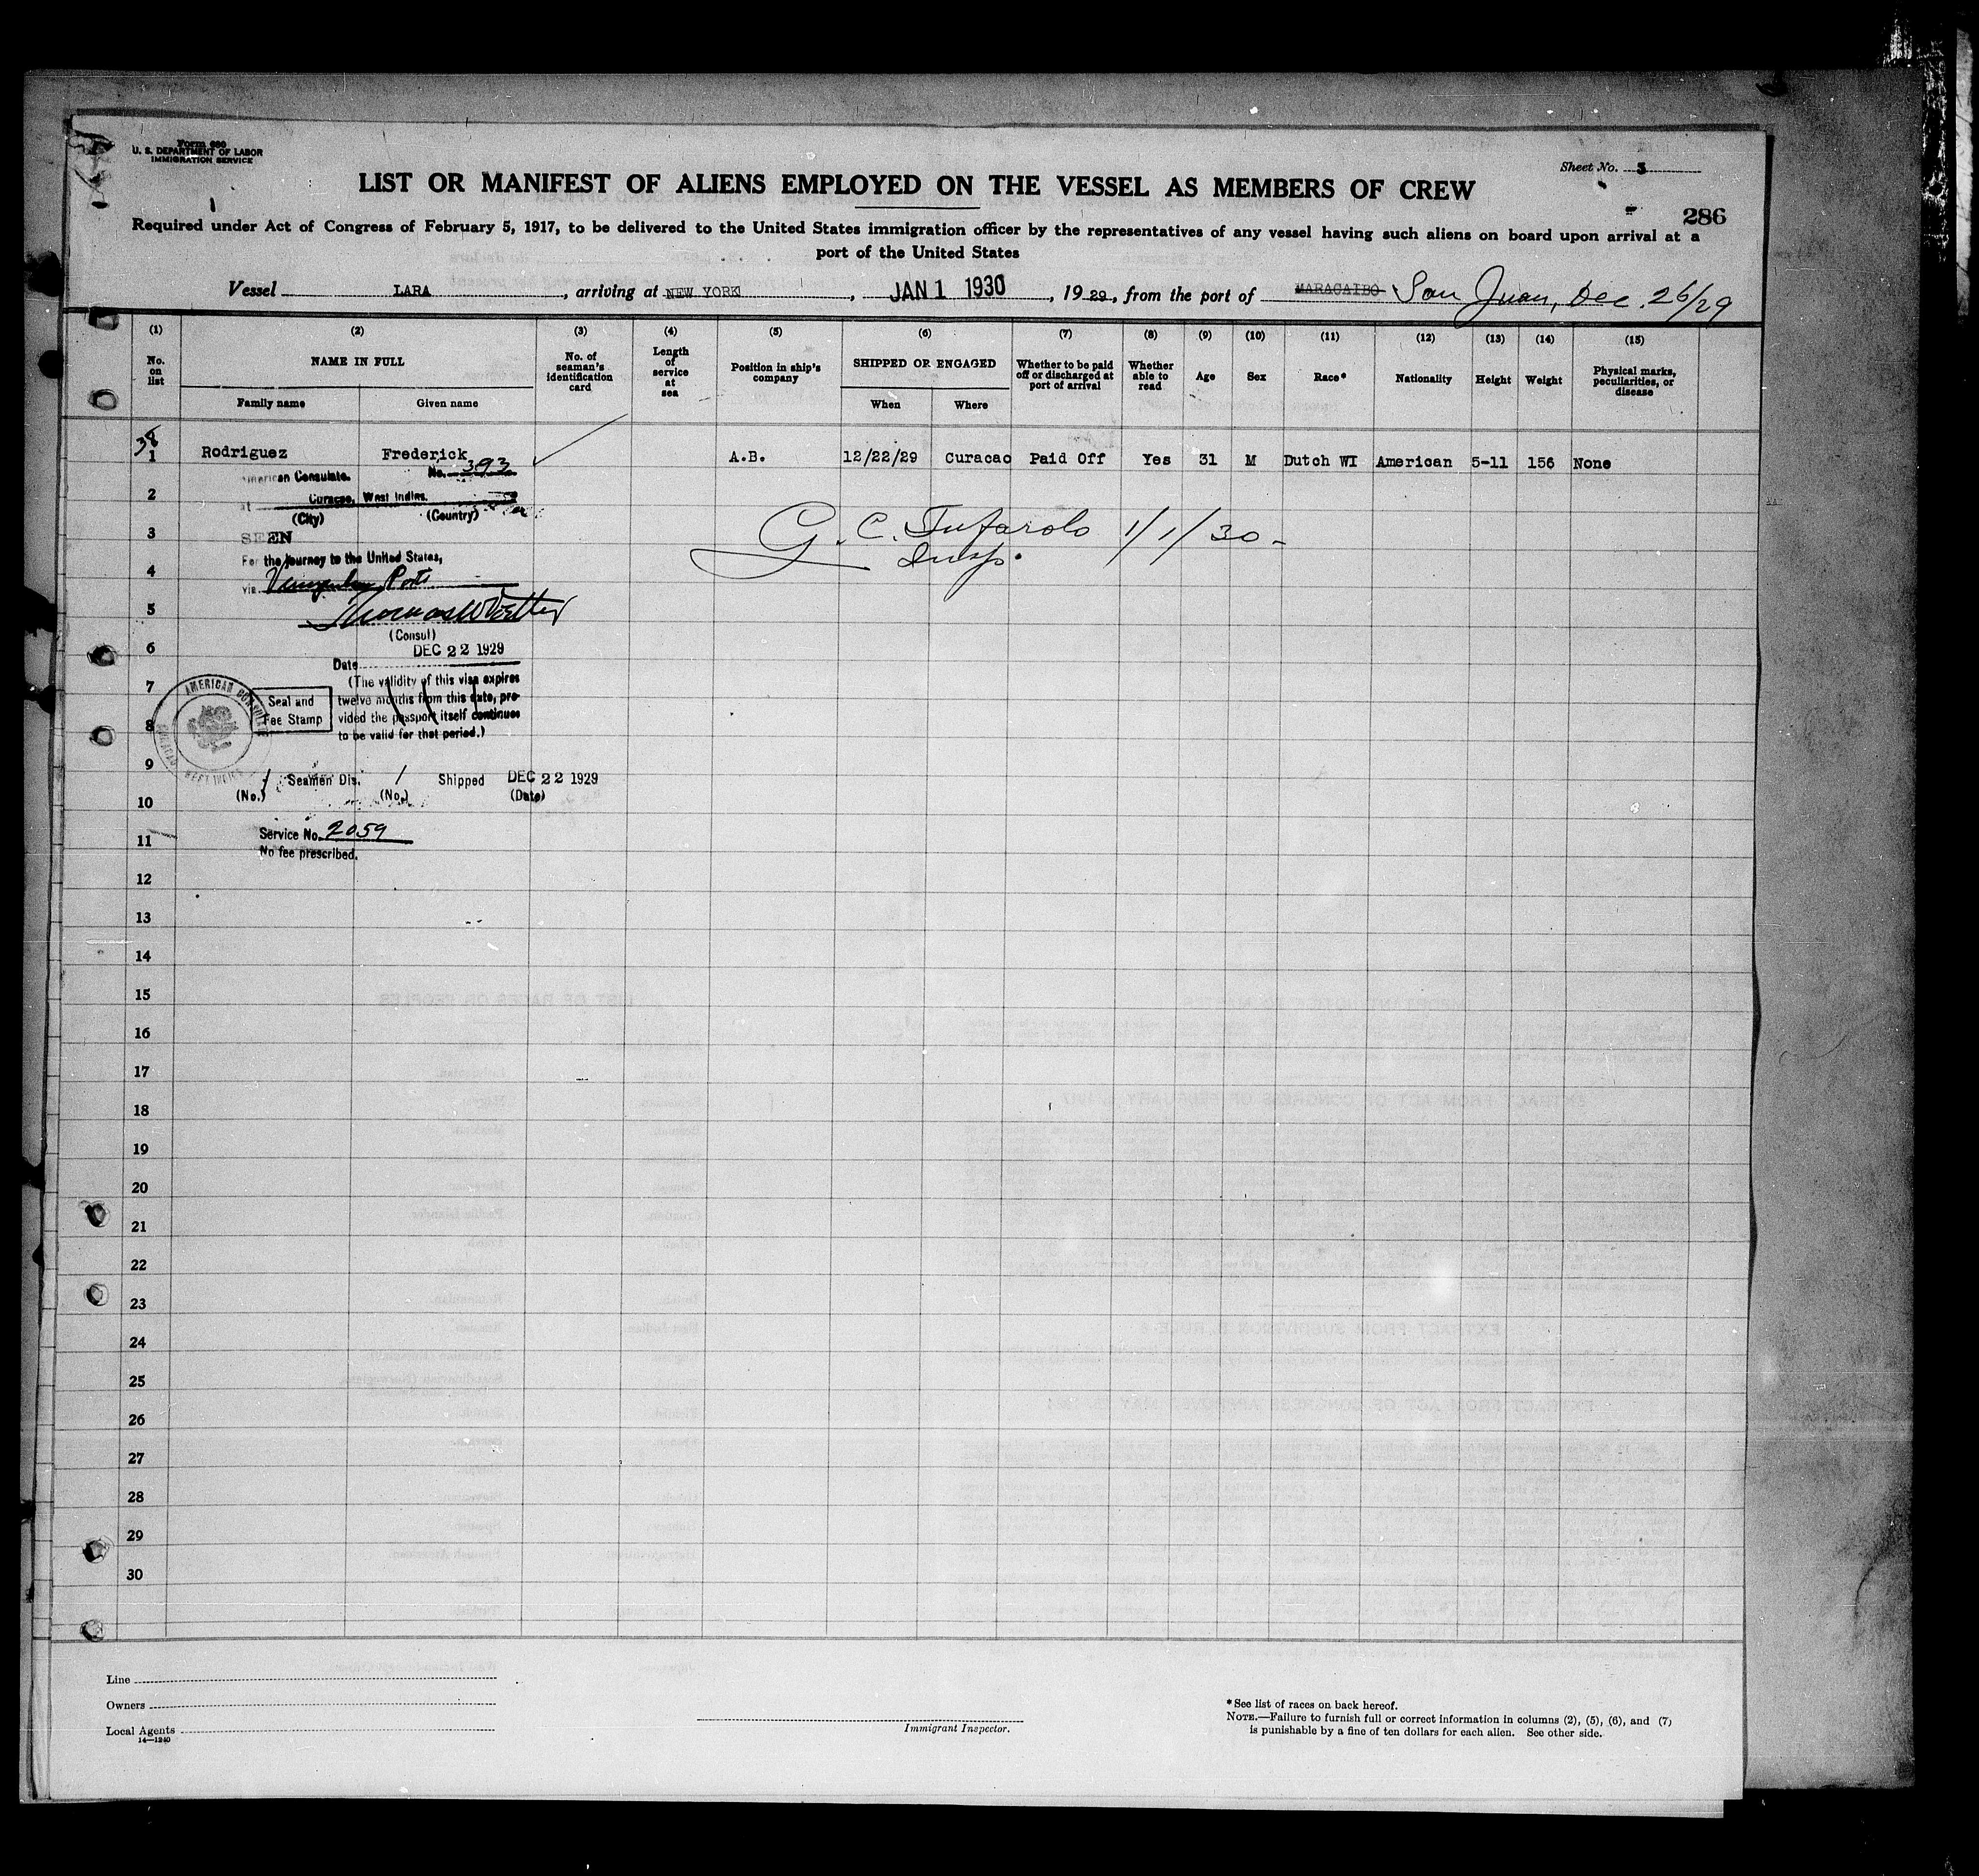 Form 680
U. S. DEPARTMENT OF LABOR
IMMIGRATION SERVICE
Sheet No. 3
LIST OR MANIFEST OF ALIENS EMPLOYED ON THE VESSEL AS MEMBERS OF CREW
286
Required under Act of Congress of February 5, 1917, to be delivered to the United States immigration officer by the representatives of any vessel having such aliens on board upon arrival at a
port of the United States
Vessel LARA, arriving at NEW YORK, JAN 1 1930, 1929, from the port of MARACAIBO San Juan, Dec. 26/29
(1) (2) (3) (4) (5) (6) (7) (8) (9) (10) (11) (12) (13) (14) (15)
No. on list NAME IN FULL No. of seaman's identification card Length of service at sea Position in ship's company SHIPPED OR ENGAGED Whether to be paid off or discharged at port of arrival Whether able to read Age Sex Race* Nationality Height Weight Physical marks, peculiarities, or disease
Family name Given name When Where
38
1 Rodriguez Frederick A.B. 12/22/29 Curacao Paid Off Yes 31 M Dutch WI American 5-11 156 None
American Consulate. No. 393
2 at Curacao, West Indies.
(City) (Country)
3 SEEN
G. C. Tufarolo 1/1/30 -
Insp.
For the journey to the United States,
4 via Venezuelan Ports
5
(Consul)
6 DEC 22 1929
Date
7 (The validity of this visa expires
twelve months from this date, pro-
vided the passport itself continues
to be valid for that period.)
AMERICAN CONSULATE
CURACAO WEST INDIES
Seal and
Fee Stamp
8
9 1 Seamen Dis. 1 Shipped DEC 22 1929
(No.) (No.) (Date)
10
11 Service No. 2059
No fee prescribed.
12
13
14
15
16
17
18
19
20
21
22
23
24
25
26
27
28
29
30
Line
Owners
Local Agents
14—1240
Immigrant Inspector.
* See list of races on back hereof.
NOTE.—Failure to furnish full or correct information in columns (2), (5), (6), and (7)
is punishable by a fine of ten dollars for each alien. See other side.